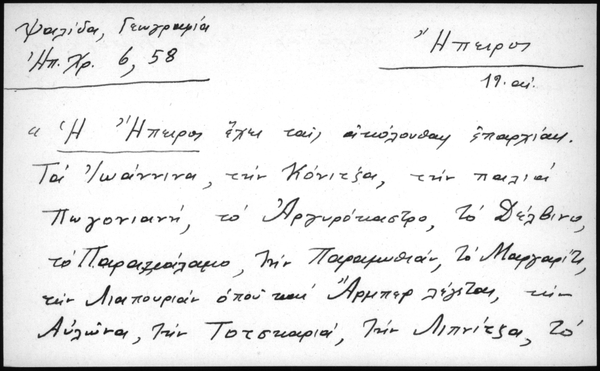 Ψαλίδα, Γεωγραφία
Ἠπ. Χρ. 6, 58
Ἤπειρος
19. αἰ.
« Ἡ Ἤπειρος ἔχει ταῖς ἀκόλουθαις ἐπαρχίαις.
Τά Ἰωάννινα, τήν Κόνιτζα, τήν παλιά
Πωγονιανή, τό Ἀργυρόκαστρο, τό Δέλβινο,
τό Παρακάλαμο, τήν Παραμυθιάν, τό Μαργαρίτι,
τήν Λιαπουριάν ὁποῦ καί Ἄρμπερ λέγεται, τήν
Αὐλῶνα, τήν Τοτσκαριά, τήν Λιπνίτζα, τό